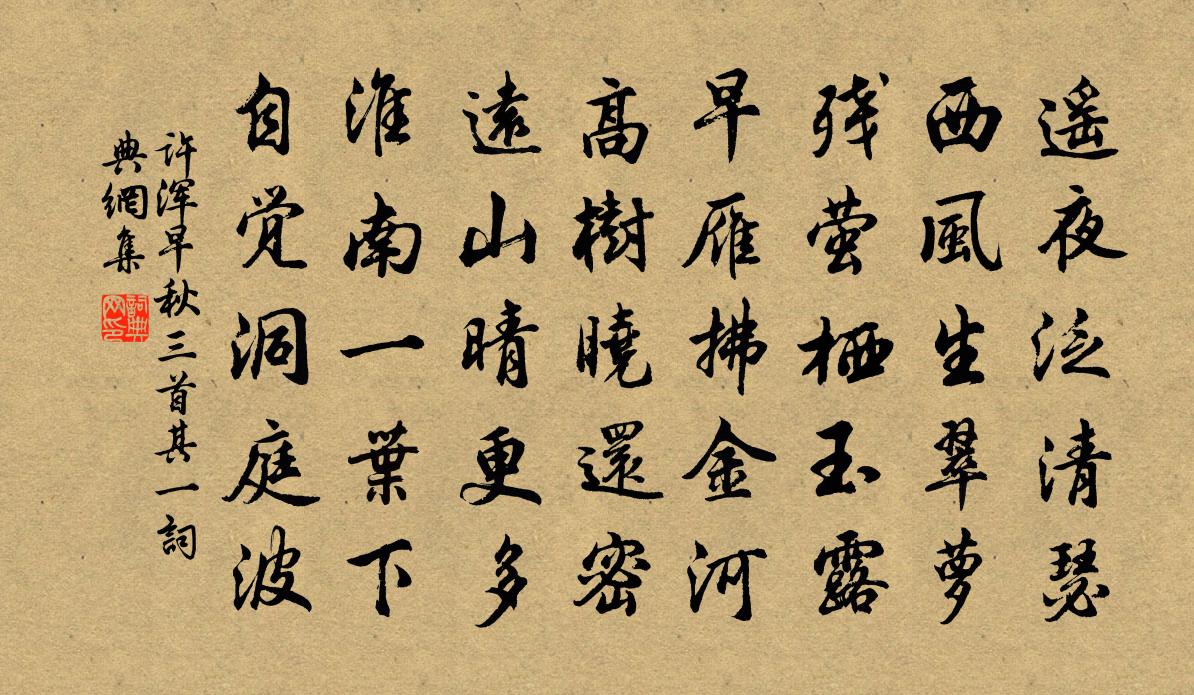 遥夜泛清瑟
西風生翠萝
残萤栖玉露
早雁拂金河
高樹曉還密
遠山晴更多
淮南一葉下
自觉洞庭波
许浑早秋三首其一詞
典網集
詞典
网印